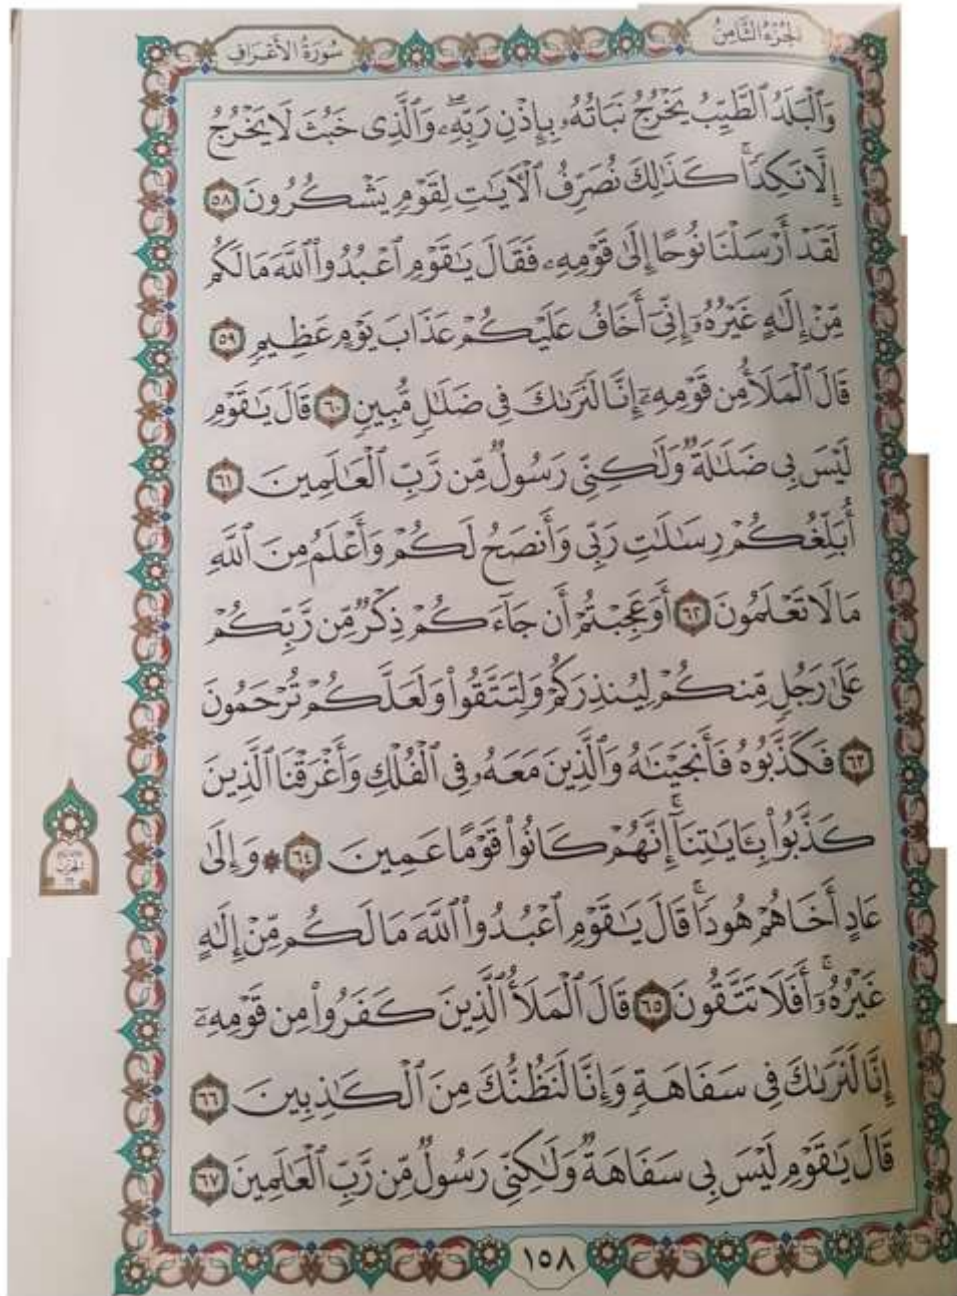 الجُزْءُ الثَّامِنُ
سُورَةُ الأَعْرَافِ
وَٱلْبَلَدُ ٱلطَّيِّبُ يَخْرُجُ نَبَاتُهُۥ بِإِذْنِ رَبِّهِۦۖ وَٱلَّذِى خَبُثَ لَا يَخْرُجُ
إِلَّا نَكِدًاۚ كَذَٰلِكَ نُصَرِّفُ ٱلْءَايَٰتِ لِقَوْمٍ يَشْكُرُونَ ٥٨
لَقَدْ أَرْسَلْنَا نُوحًا إِلَىٰ قَوْمِهِۦ فَقَالَ يَٰقَوْمِ ٱعْبُدُوا۟ ٱللَّهَ مَا لَكُم
مِّنْ إِلَٰهٍ غَيْرُهُۥٓ إِنِّىٓ أَخَافُ عَلَيْكُمْ عَذَابَ يَوْمٍ عَظِيمٍ ٥٩
قَالَ ٱلْمَلَأُ مِن قَوْمِهِۦٓ إِنَّا لَنَرَىٰكَ فِى ضَلَٰلٍ مُّبِينٍ ٦٠ قَالَ يَٰقَوْمِ
لَيْسَ بِى ضَلَٰلَةٌ وَلَٰكِنِّى رَسُولٌ مِّن رَّبِّ ٱلْعَٰلَمِينَ ٦١
أُبَلِّغُكُمْ رِسَٰلَٰتِ رَبِّى وَأَنصَحُ لَكُمْ وَأَعْلَمُ مِنَ ٱللَّهِ
مَا لَا تَعْلَمُونَ ٦٢ أَوَعَجِبْتُمْ أَن جَآءَكُمْ ذِكْرٌ مِّن رَّبِّكُمْ
عَلَىٰ رَجُلٍ مِّنكُمْ لِيُنذِرَكُمْ وَلِتَتَّقُوا۟ وَلَعَلَّكُمْ تُرْحَمُونَ
٦٣ فَكَذَّبُوهُ فَأَنجَيْنَٰهُ وَٱلَّذِينَ مَعَهُۥ فِى ٱلْفُلْكِ وَأَغْرَقْنَا ٱلَّذِينَ
كَذَّبُوا۟ بِـَٔايَٰتِنَآۚ إِنَّهُمْ كَانُوا۟ قَوْمًا عَمِينَ ٦٤ ۞ وَإِلَىٰ
عَادٍ أَخَاهُمْ هُودًاۚ قَالَ يَٰقَوْمِ ٱعْبُدُوا۟ ٱللَّهَ مَا لَكُم مِّنْ إِلَٰهٍ
غَيْرُهُۥٓۚ أَفَلَا تَتَّقُونَ ٦٥ قَالَ ٱلْمَلَأُ ٱلَّذِينَ كَفَرُوا۟ مِن قَوْمِهِۦٓ
إِنَّا لَنَرَىٰكَ فِى سَفَاهَةٍ وَإِنَّا لَنَظُنُّكَ مِنَ ٱلْكَٰذِبِينَ ٦٦
قَالَ يَٰقَوْمِ لَيْسَ بِى سَفَاهَةٌ وَلَٰكِنِّى رَسُولٌ مِّن رَّبِّ ٱلْعَٰلَمِينَ ٦٧
١٥٨